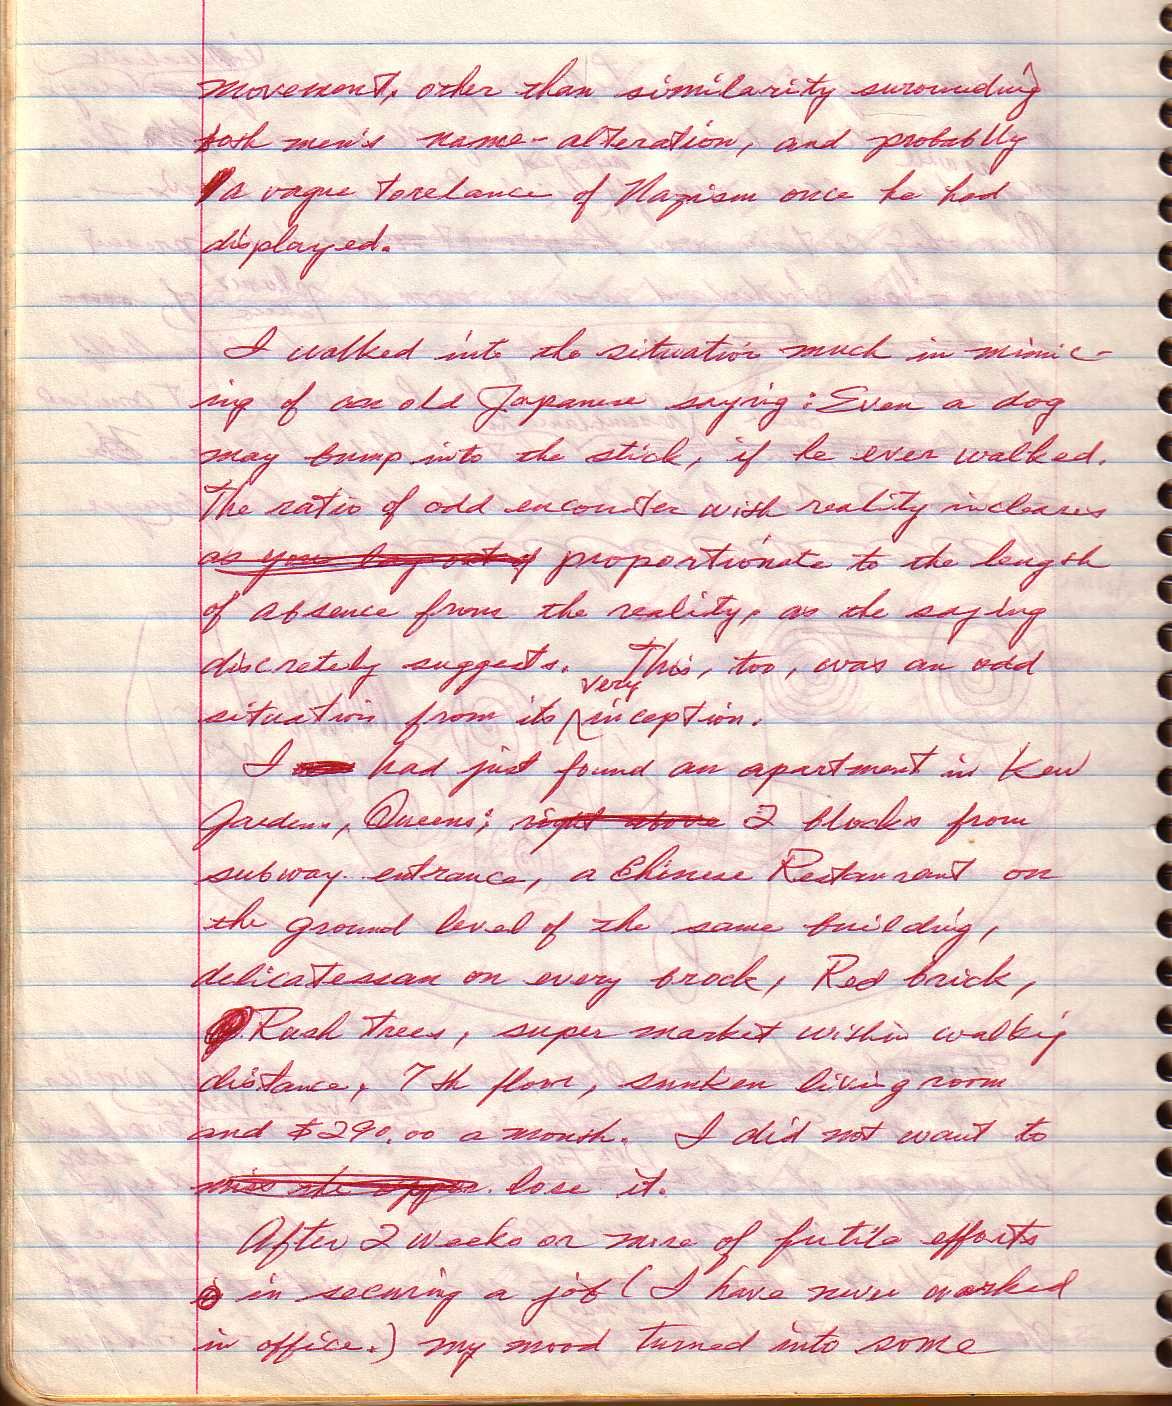 movement, other than similarity surounding
both men's name-alteration, and probablly
a vague torelance of Nazism once he had
displayed.
I walked into the situation much in mimic-
ing of an old Japanese saying: Even a dog
may bump into the stick, if he ever walked.
The ratio of odd encounter with reality increases
as you lay out of proportionate to the length
of absence from the reality, as the saying
discretely suggests. This, too, was an odd
situation from its very inception.
I had just found an apartment in Kew
Gardens, Queens; right above 2 blocks from
subway entrance, a Chinese Restaurant on
the ground level of the same building,
delicatessan on every brock, Red brick,
Rash trees, super market within walking
distance, 7th floor, sunken living room
and $290.00 a month. I did not want to
miss the oppor. lose it.
After 2 weeks or more of futile efforts
in securing a job (I have never worked
in office.) my mood turned into some